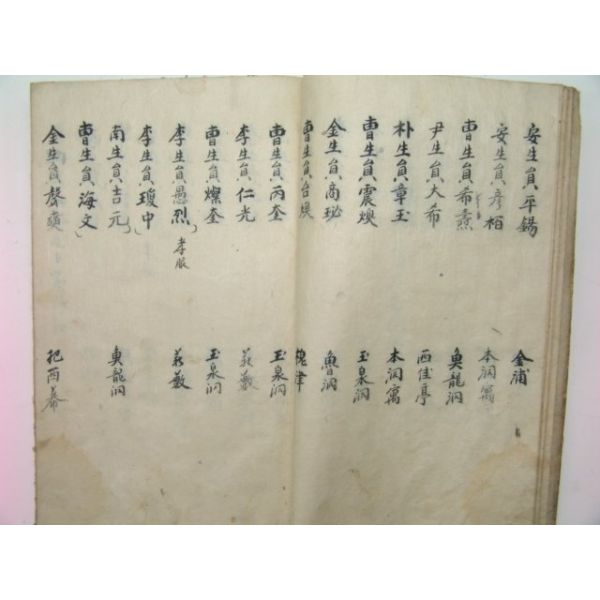 安生員平錫 金浦
安生員彦栢 本洞寓
曺生員希 奧龍洞
尹生員大希 西佳亭
朴生員章玉 本洞寓
曺生員震煥 玉泉洞
金生員商珌 魯洞
曺生員台煥 槐津
曺生員丙奎 玉泉洞
李生員仁光 藪
曺生員燦奎 玉泉洞
李生員愚烈 孝服 藪
李生員瓊中
南生員吉元 奧龍洞
曺生員海文
金生員聲 把酉幕